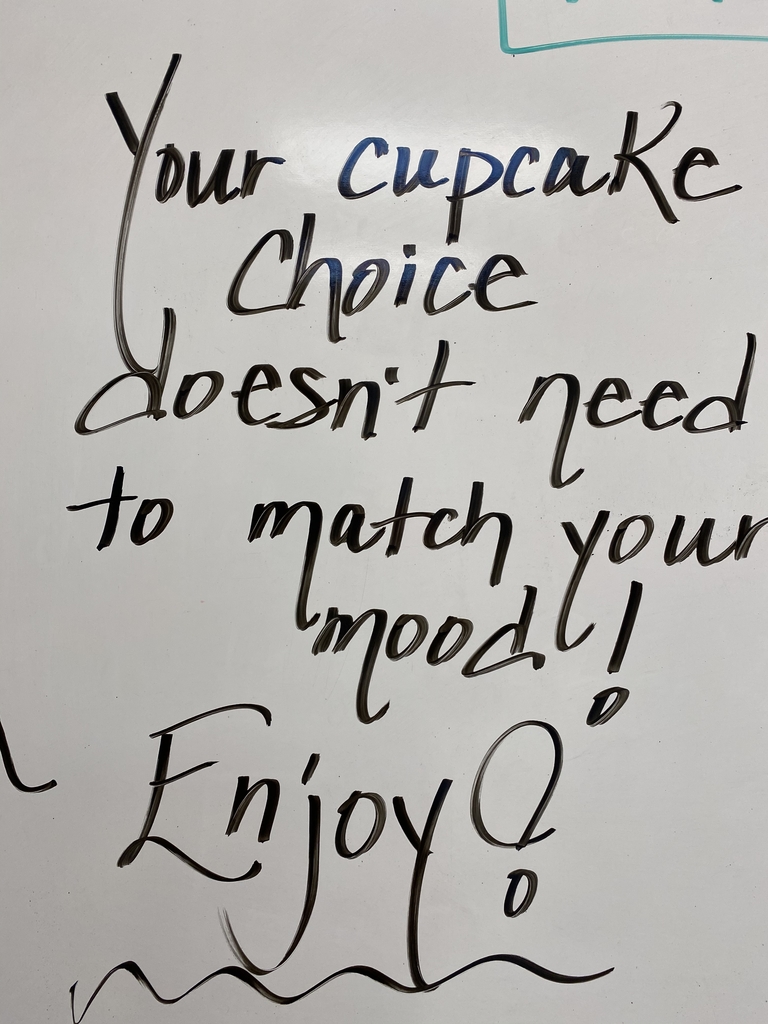 Your cupcake
Choice
doesn't need
to match your
mood!
Enjoy!